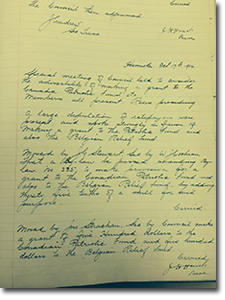 The Council then adjourned
Carried
Sec Treas
Reeve
Oct 17th
Special meeting of Council held to consider
the advisability of making a grant to the
Canada Patriotic Fund etc.
Members all present Reeve presiding
A large deputation of ratepayers were
present and spoke strongly in favor of
making a grant to the Patriotic Fund and
also the Belgian Relief Fund
Moved by Sec by
That a By law be passed amending By
law No to make provision for a
grant to the Canadian Patriotic Fund and
also to the Belgian Relief Fund by adding
tenths of a mill for said
purpose.
Carried
Moved by Jas Strachan, Sec by Council make
a grant of Five Hundred Dollars to the
Canadian Patriotic Fund and one hundred
dollars to the Belgian Relief Fund
Carried
Reeve